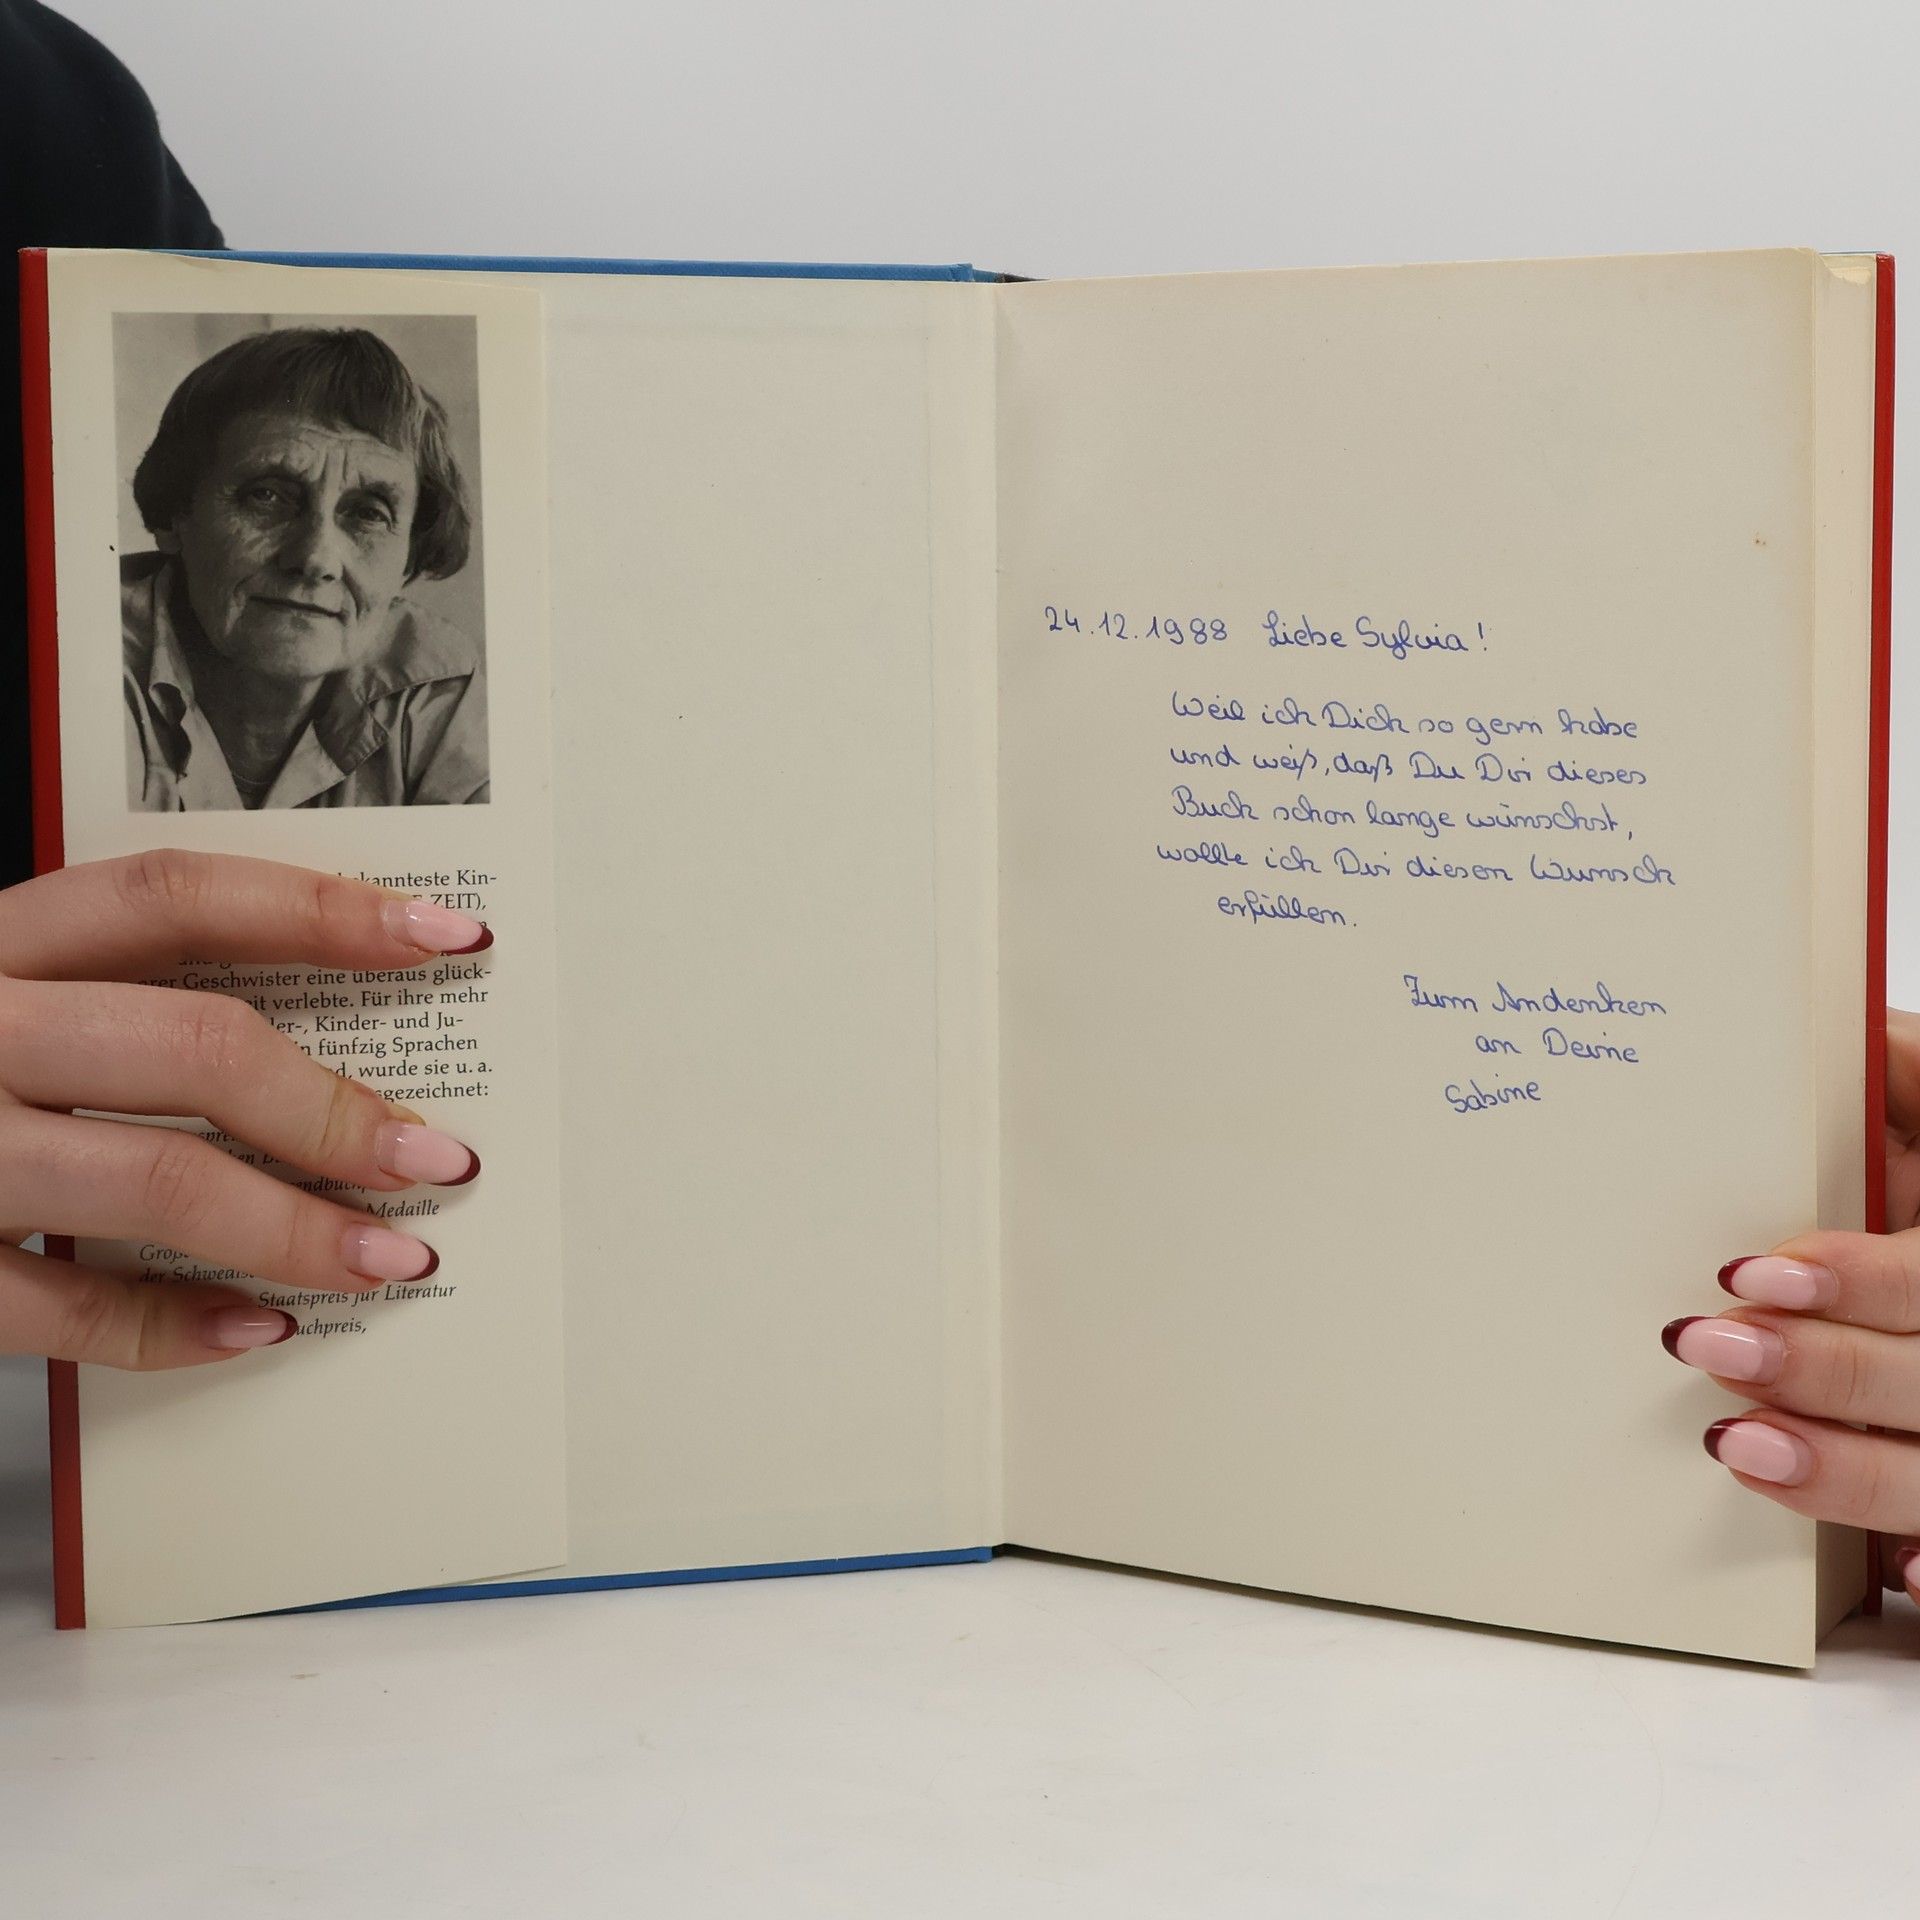 bekannteste Kin-
ZEIT),
Geschwister eine überaus glück-
verlebte. Für ihre mehr
Kinder- und Ju-
fünfzig Sprachen
wurde sie u. a.
Medaille
Staatspreis für Literatur
24.12.1988 Liebe Sylvia!
Weil ich Dich so gern habe
und weiß, daß Du Dir dieses
Buch schon lange wünschst,
wollte ich Dir diesen Wunsch
erfüllen.
Zum Andenken
an Deine
Sabine